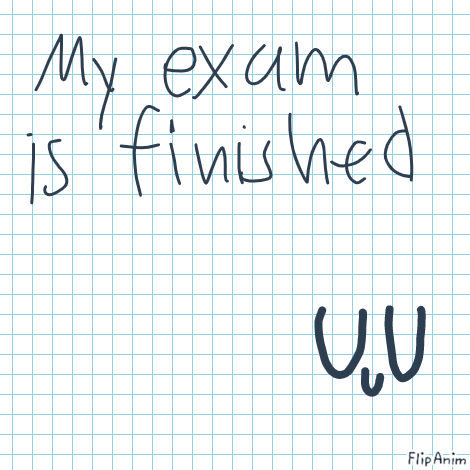 My exam
is finished
UuU
FlipAnim